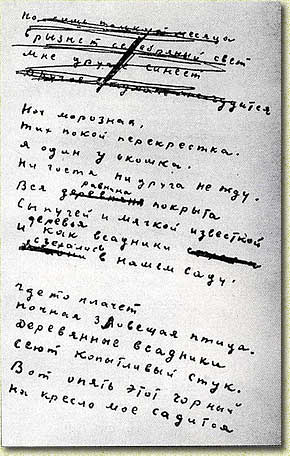 Но лишь тонкий месяц
брызнет серебряный свет
Мне другая синеет
Другое в тумане чудится
Ночь морозная,
Тих покой перекрестка.
я один у окошка.
Ни гостя ни друга не жду.
Вся равнина покрыта
Сыпучей и мягкой известкой
И деревья как всадники
съехались в нашем саду.
Где то плачет
ночная зловещая птица.
Деревянные всадники
сеют копытливый стук.
Вот опять этот чорный
На кресло мое садится